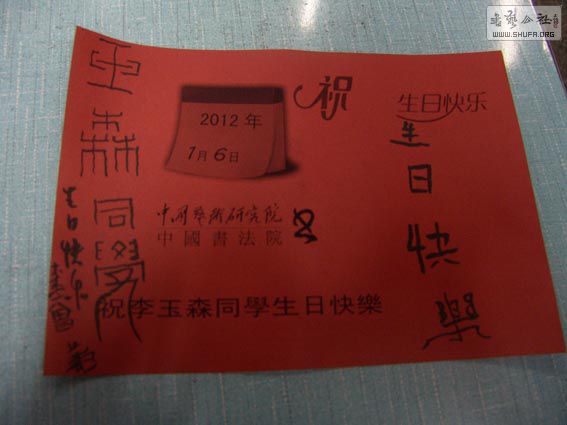 書藝公社
WWW.SHUFA.ORG
玉森同學
2012 年
1月 6日
祝
生日快乐
生日快樂
中国艺術研究院
中國書法院
生日快乐
祝李玉森同學生日快樂